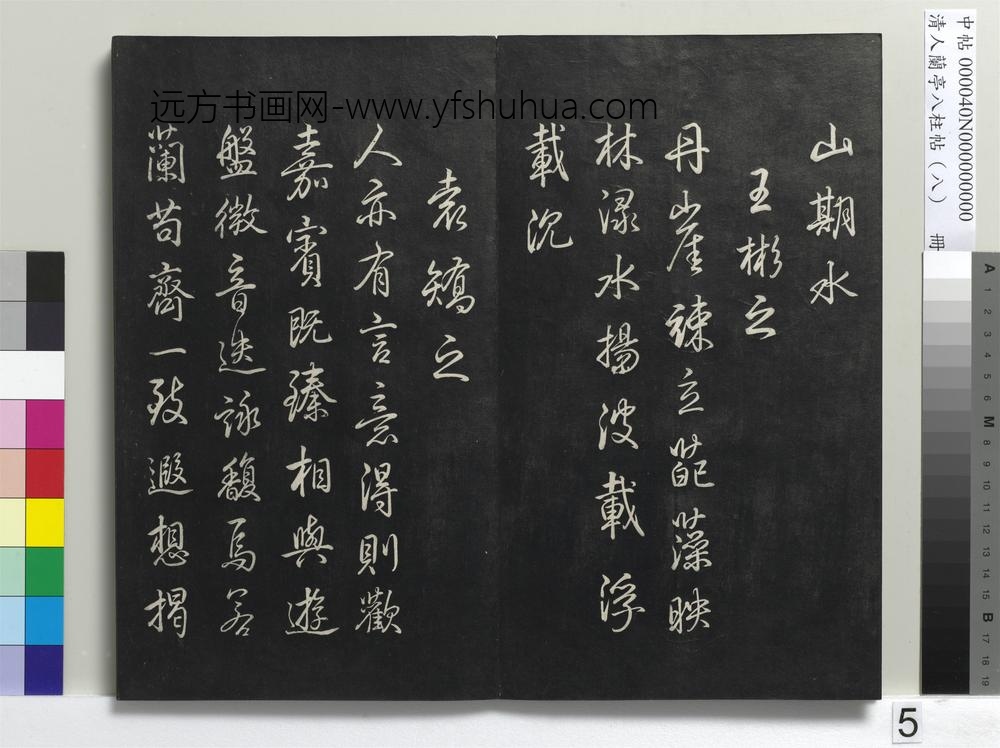 中帖 000040N000000000
清人蘭亭八柱帖（八） 冊
远方书画网-www.yfshuhua.com
山期水
王彬之
丹崖竦立葩藻映
林淥水揚波載浮
載沉
袁矯之
人亦有言意得則歡
嘉賓既臻相與遊
盤微音迭詠馥焉若
蘭苟齊一致遐想揭
A 1 2 3 4 5 6 M 8 9 10 11 12 13 14 15 B 17 18 19
5